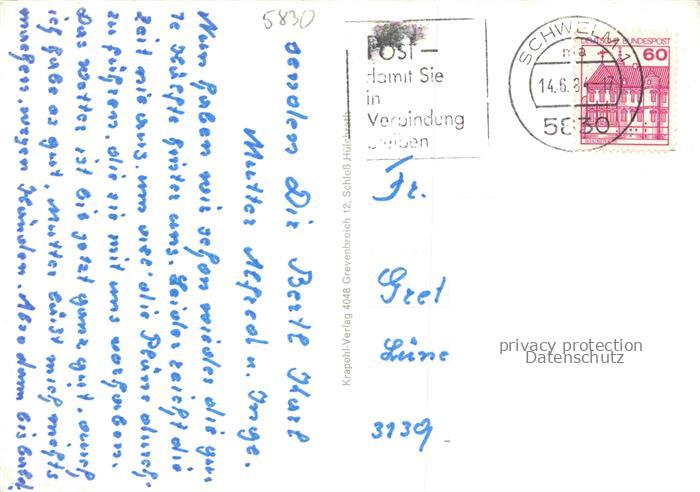 5830
POST –
damit Sie
in
Verbindung
bleiben
SCHWELM 1
ma
14.6.84-17
5830
DEUTSCHE BUNDESPOST
60
Nun haben wir schon wieder die
Hälfte hinter uns. Leider reicht die
Zeit nie aus, um all die Pläne durch
zu führen, die wir mit uns vorhaben.
Das Wetter ist bis jetzt ganz gut. Auch
ich habe es gut, Mutter läßt mich nichts
wegen Händen. Also dann bis bald
senden Dir Bertl Karl
Mutter Alfred u. Inge.
Krapohl-Verlag 4048 Grevenbroich 12, Schloß Hülchrath
Fr.
Gret
Lüne
3139
privacy protection
Datenschutz